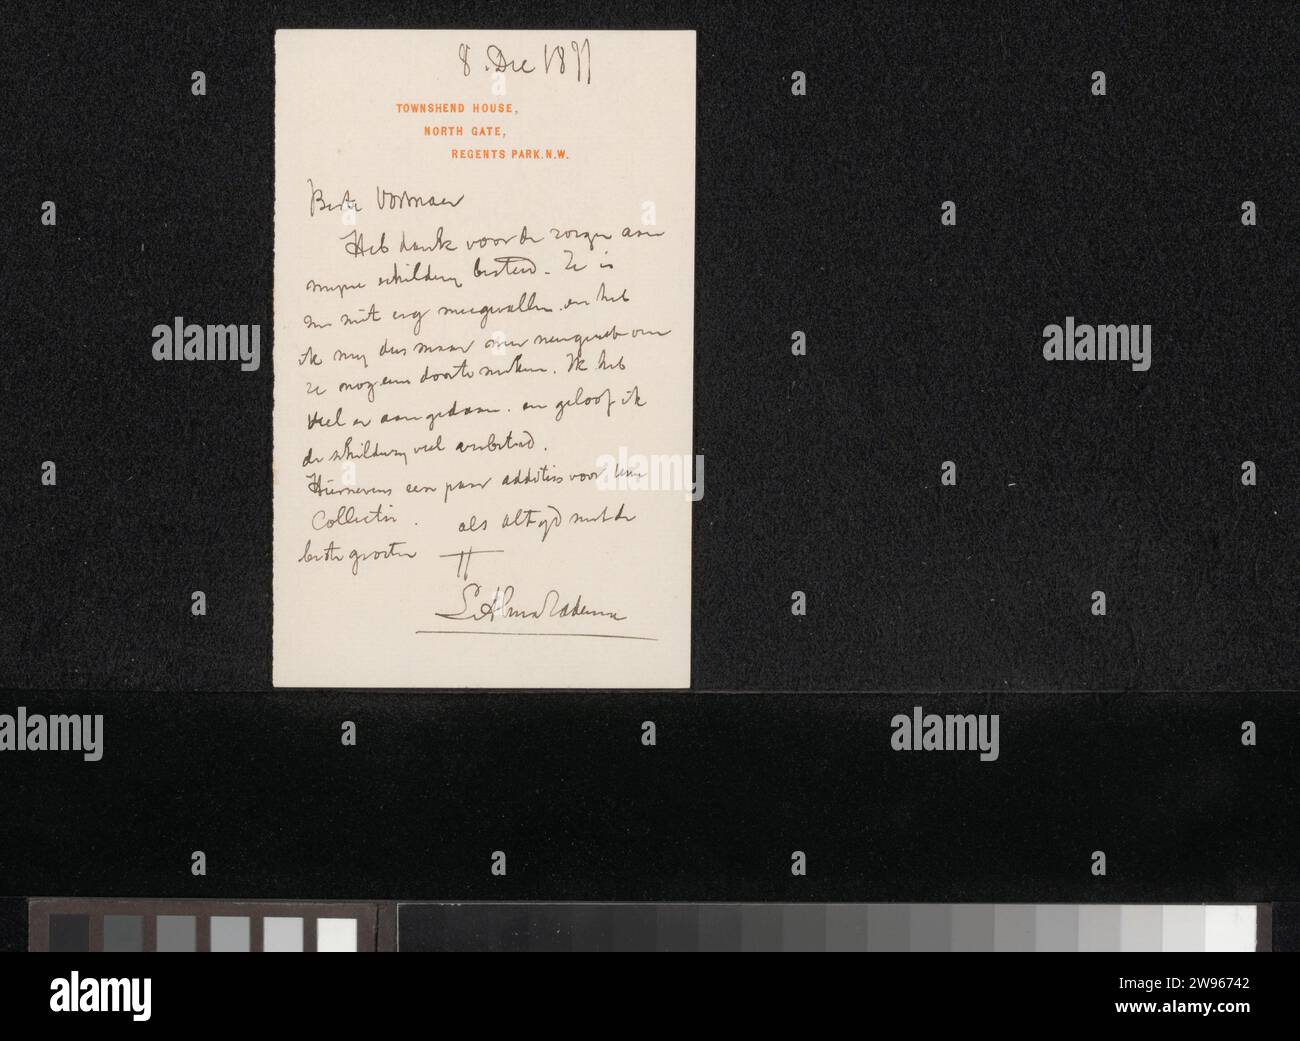 8. Dec 1877
TOWNSHEND HOUSE,
NORTH GATE,
REGENTS PARK.N.W.
Beste Vosmaer
Heb dank voor de zorgen aan
mijne schildery besteed. Ze is
me niet erg meegevallen. en heb
ik my dus maar over
ze nog eens door te maken. Ik heb
veel er aan gedaan. en geloof ik
de schildery veel verbeterd.
Hiernevens een paar additios voor uw
Collectie. als altyd met de
beste groeten
L Alma Tadema
alamy
a
Image ID: 2W96742
www.alamy.com